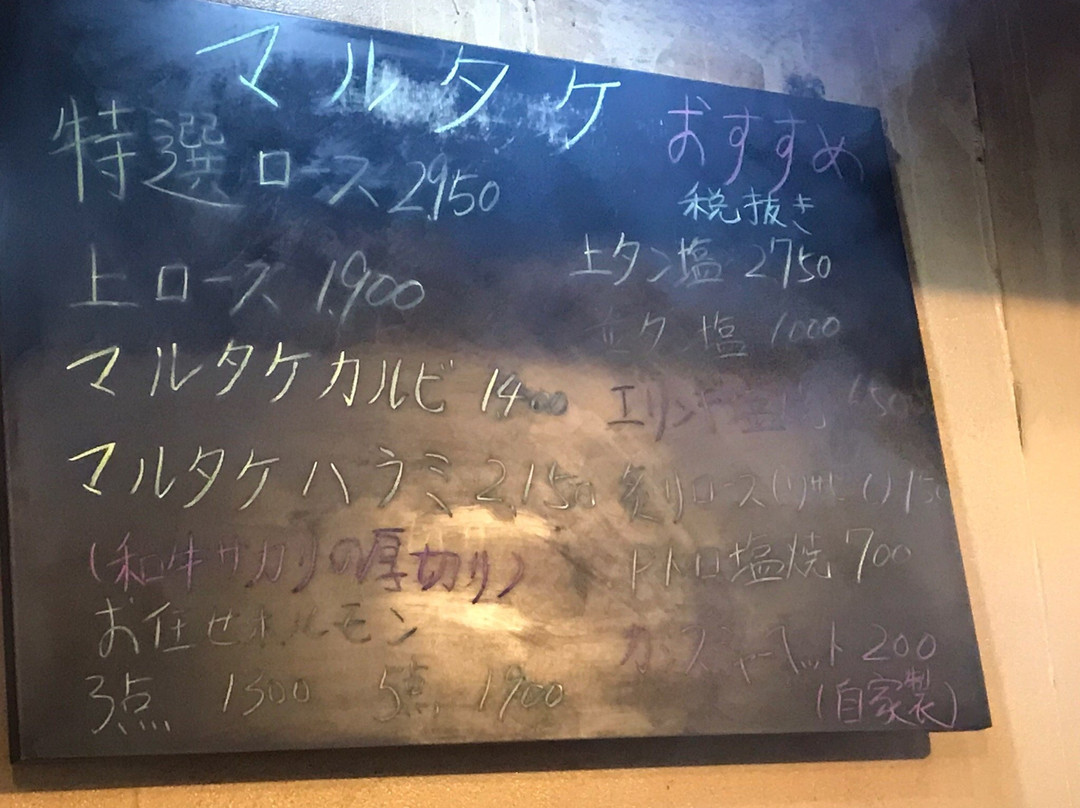 マルタケ
おすすめ
税抜き
特選ロース 2,950
上ロース 1,900
マルタケカルビ 1400
マルタケハラミ 2,150
(和牛サガリの厚切り)
お任せホルモン
3点 1300 5点 1900
上タン塩 2750
タン塩 1000
エリンギ
炙りロース
トトロ塩焼 700
シャーベット 200
(自家製)